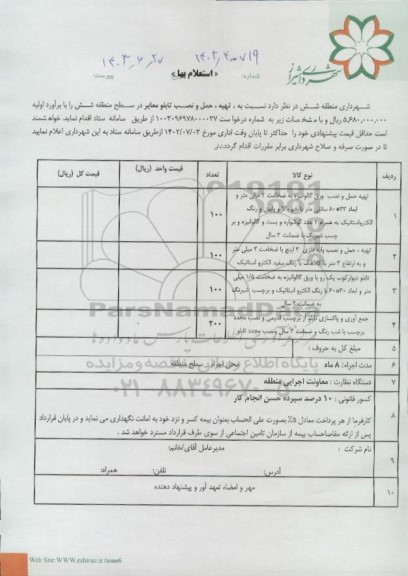 شهرداری شیراز
۱۴۰۳/۶/۲۷
پیوست:
«استعلام بها»
شماره:
شهرداری منطقه شش در نظر دارد نسبت به ، تهیه ، حمل و نصب تابلو معابر در سطح منطقه شش را با برآورد اولیه
۵،۶۸۰،۰۰۰،۰۰۰ ریال و با مشخصات زیر به شماره درخواست ۱۱۰۰۳۰۹۶۹۷۸۰۰۰۰۳۷ از طریق سامانه ستاد اقدام نماید. خواهشمند
است حداقل قیمت پیشنهادی خود را حداکثر تا پایان وقت اداری مورخ ۱۴۰۳/۰۷/۰۲ ازطریق سامانه ستاد به این شهرداری اعلام نمایید
تا در صورت صرفه و صلاح شهرداری برابر مقررات اقدام گردد.
ردیف نوع کالا تعداد قیمت واحد (ریال) قیمت کل (ریال)
۱ تهیه حمل و نصب ورق گالوانیزه به ضخامت ۲ میلی متر و
الکترواستاتیک به همراه ۲ عدد گوشواره و بست و گالوانیزه و بر
چسب شبرنگ با ضمانت ۲ سال
۱۰۰
۲ تهیه ، حمل و نصب پایه فلزی ۲ اینچ با ضخامت ۲ میلی متر
و به ارتفاع ۳ متر با کلاهک با رنگ سفید الکترو استاتیک
۱۰۰
۳ تابلو دیوارکوب یک رو با ورق گالوانیزه به ضخامت ۱/۵ میلی
متر و ابعاد ۴۰*۶۰ با رنگ الکترو استاتیک و برچسب شبرنگ
به ضمانت ۲ سال
۱۰۰
۴ جمع آوری و پاکسازی تابلو از برچسب قدیمی و نصب مجدد
برچسب با شب رنگ و ضمانت ۲ سال ونصب مجدد تابلو
۲۰۰
۵ مبلغ کل به حروف :
۶ مدت اجراء: ۸ ماه محل اجراء: سطح منطقه
۷ دستگاه نظارت : معاونت اجرایی منطقه
۸ کسور قانونی : ۱۰ درصد سپرده حسن انجام کار
کارفرما از هر پرداخت معادل ۵٪ بصورت علی الحساب بعنوان بیمه کسر و نزد خود به امانت نگهداری می نماید و در پایان قرارداد
پس از ارائه مفاصاحساب بیمه از سازمان تامین اجتماعی از سوی طرف قرارداد مسترد خواهد شد .
۹ نام شرکت : مدیرعامل آقای/خانم:
آدرس: تلفن: همراه:
۱۰ مهر و امضاء تعهد آور و پیشنهاد دهنده
ParsNamadData
پایگاه اطلاع رسانی مناقصه و مزایده
۰۲۱-۸۸۳۴۹۶۷۰
Web Site:WWW.eshiraz.ir/zone6